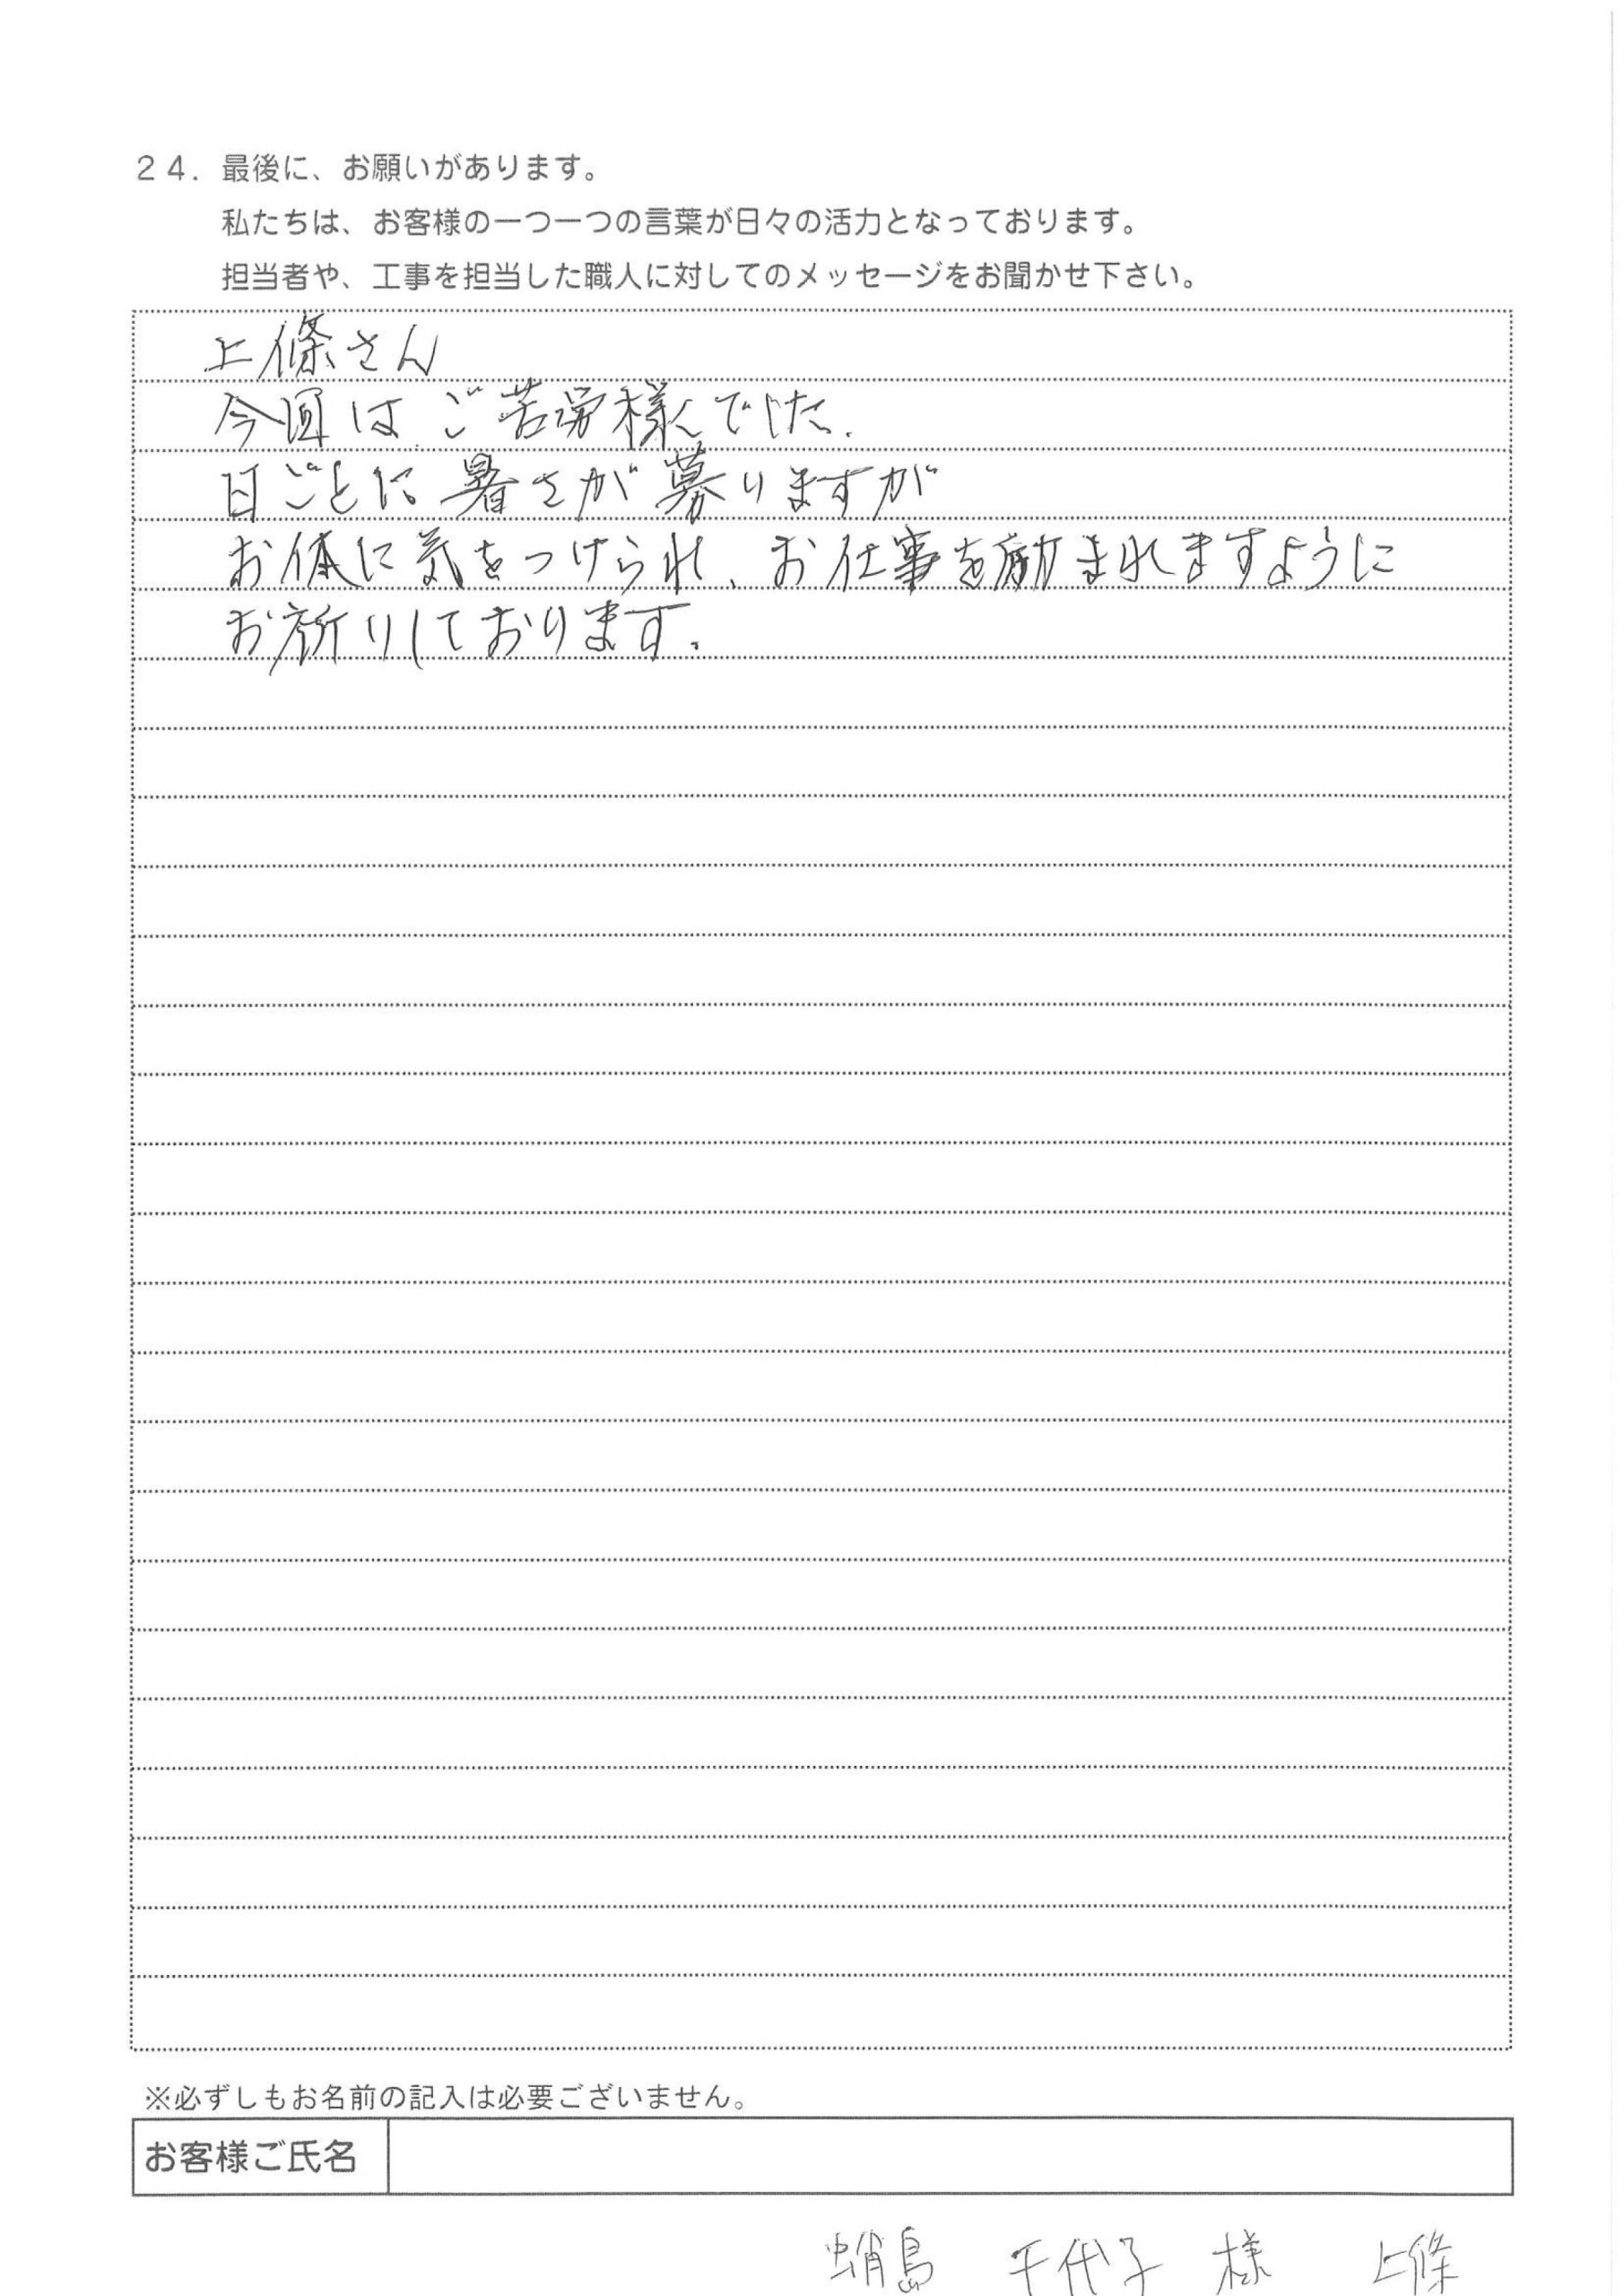 ２４．最後に、お願いがあります。
私たちは、お客様の一つ一つの言葉が日々の活力となっております。
担当者や、工事を担当した職人に対してのメッセージをお聞かせ下さい。
上條さん
今回は ご苦労様でした.
日ごとに 暑さが 募りますが
お体に気をつけられ、お仕事を励まれますように
お祈りしております.
※必ずしもお名前の記入は必要ございません。
お客様ご氏名
蛸島 千代子 様 上條